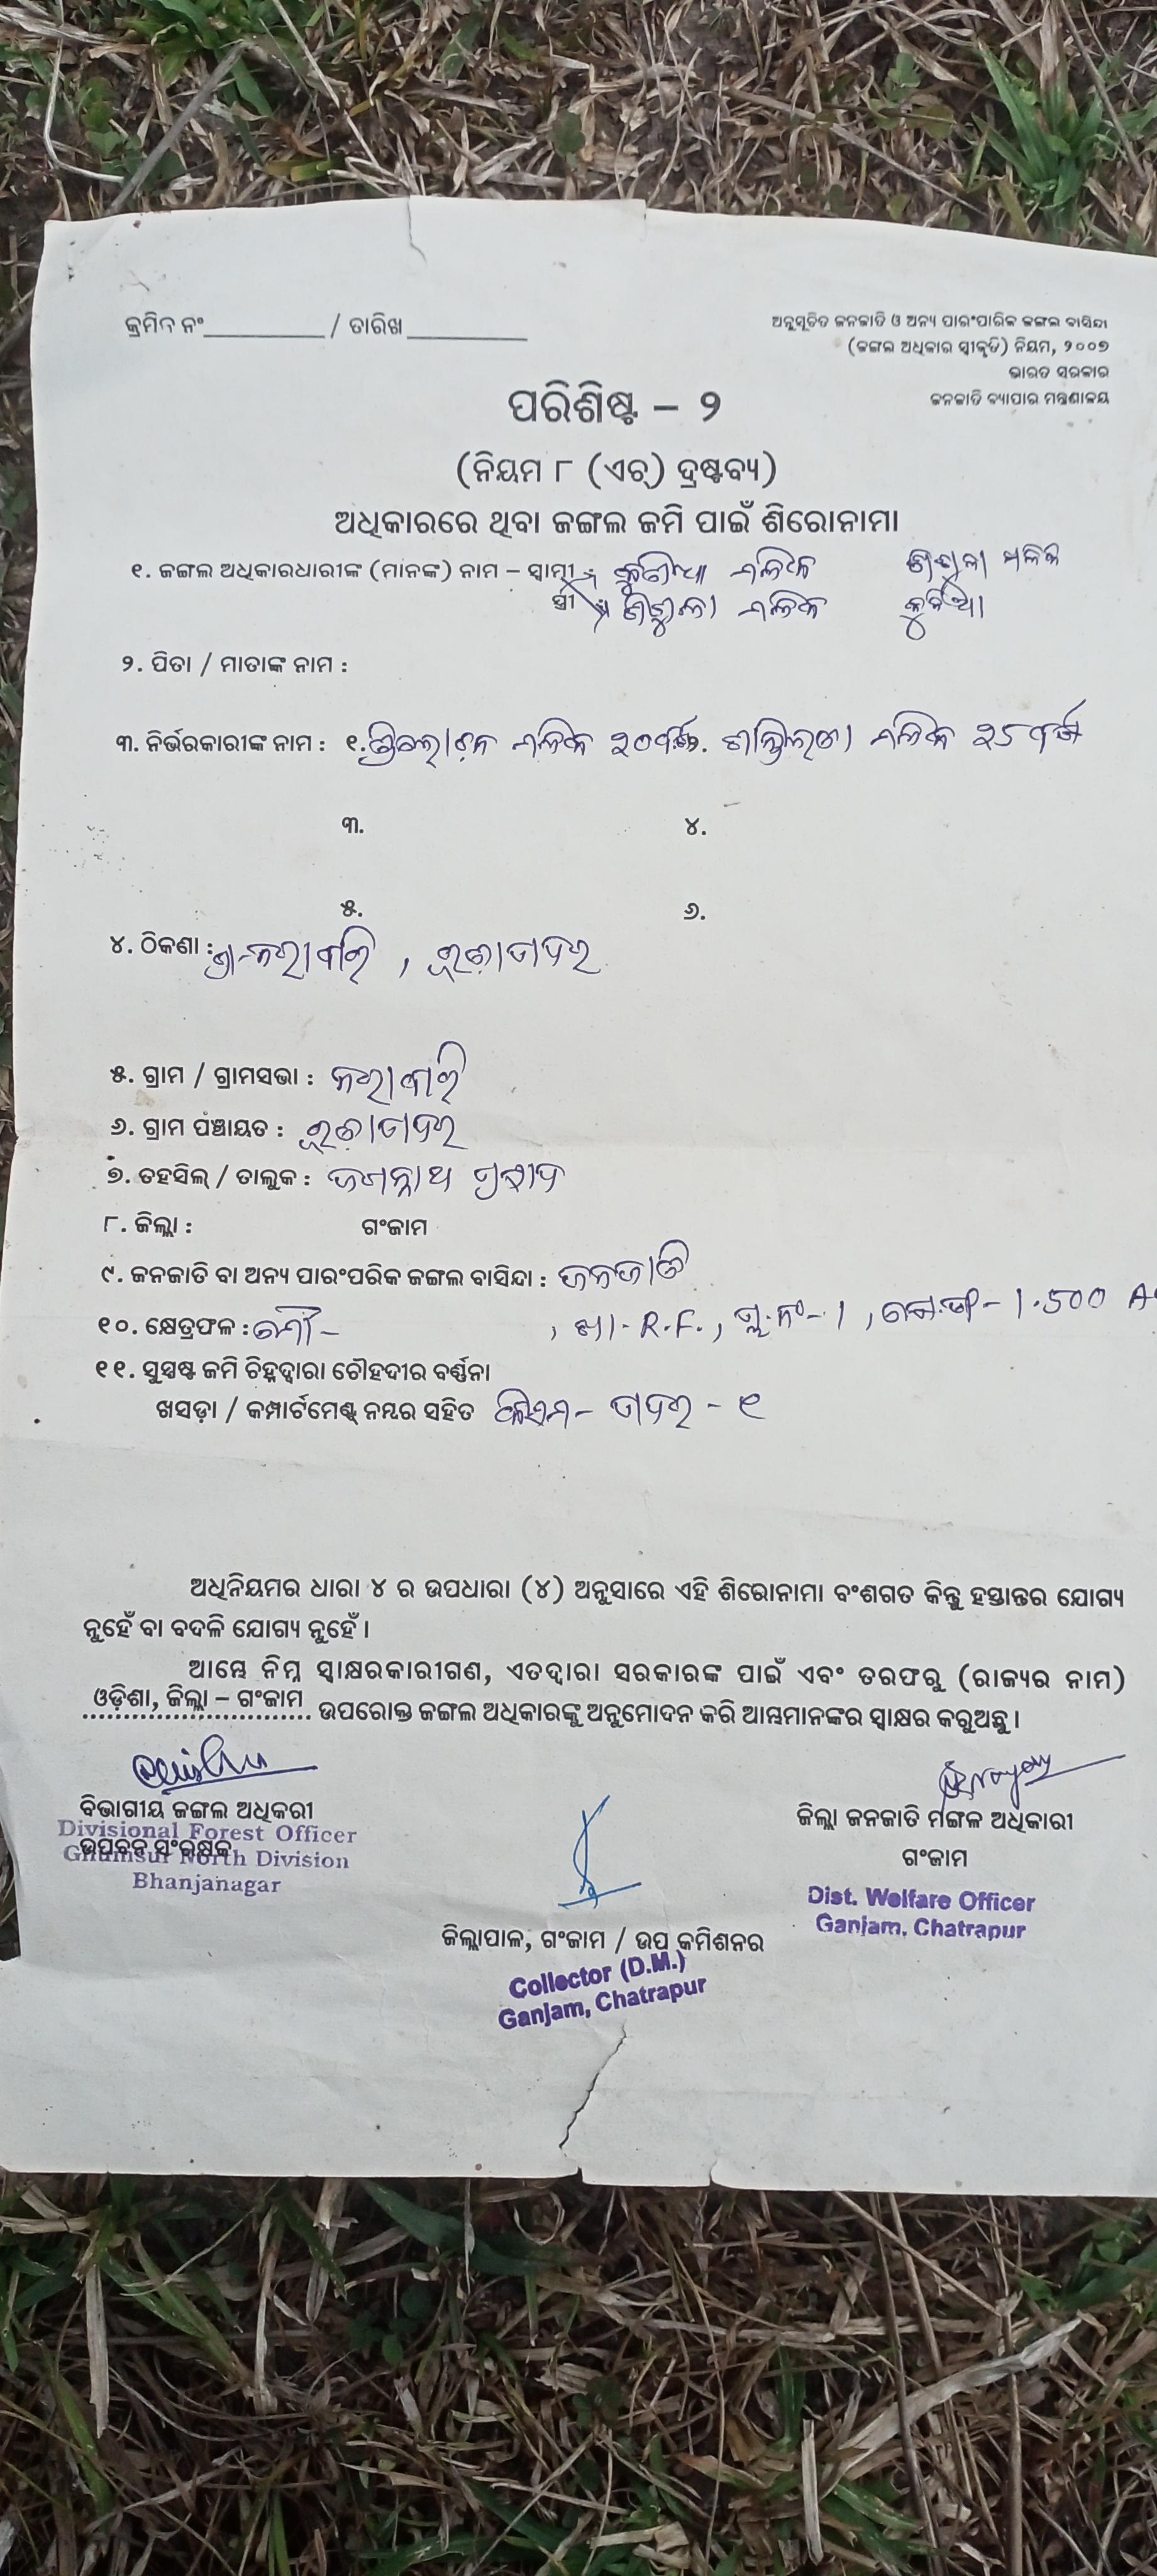 କ୍ରମିକ ନଂ__________ / ତାରିଖ__________
ଅନୁସୂଚିତ ଜନଜାତି ଓ ଅନ୍ୟ ପାରଂପାରିକ ଜଙ୍ଗଲ ବାସିନ୍ଦା
(ଜଙ୍ଗଲ ଅଧିକାର ସ୍ୱୀକୃତି) ନିୟମ, ୨୦୦୭
ଭାରତ ସରକାର
ଜନଜାତି ବ୍ୟାପାର ମନ୍ତ୍ରଣାଳୟ
ପରିଶିଷ୍ଟ – ୨
(ନିୟମ ୮ (ଏଚ୍) ଦ୍ରଷ୍ଟବ୍ୟ)
ଅଧିକାରରେ ଥିବା ଜଙ୍ଗଲ ଜମି ପାଇଁ ଶିରୋନାମା
୧. ଜଙ୍ଗଲ ଅଧିକାରଧାରୀଙ୍କ (ମାନଙ୍କ) ନାମ – ସ୍ୱାମୀ : ମଲିକ ମଳିକ
ସ୍ତ୍ରୀ : ମଲିକ
୨. ପିତା / ମାତାଙ୍କ ନାମ :
୩. ନିର୍ଭରକାରୀଙ୍କ ନାମ : ୧. ତ୍ରିଲୋଚନ ମଲିକ ୨୦ବର୍ଷ ୨. ଶାନ୍ତିଲତା ମଲିକ ୨5 ବର୍ଷ
୩. ୪.
୫. ୬.
୪. ଠିକଣା :
୫. ଗ୍ରାମ / ଗ୍ରାମସଭା :
୬. ଗ୍ରାମ ପଞ୍ଚାୟତ :
୭. ତହସିଲ୍ / ତାଲୁକ : ଜଗନ୍ନାଥ ପ୍ରସାଦ
୮. ଜିଲ୍ଲା : ଗଂଜାମ
୯. ଜନଜାତି ବା ଅନ୍ୟ ପାରଂପରିକ ଜଙ୍ଗଲ ବାସିନ୍ଦା : ଜନଜାତି
୧୦. କ୍ଷେତ୍ରଫଳ : ମୌ– , ଖା. R.F., ପ୍ଲ.ନଂ-1, – 1.500
୧୧. ସୁସ୍ପଷ୍ଟ ଜମି ଚିହ୍ନଦ୍ୱାରା ଚୌହଦୀର ବର୍ଣ୍ଣନା
ଖସଡ଼ା / କମ୍ପାର୍ଟମେଣ୍ଟ ନମ୍ବର ସହିତ କିସମ – – ୧
ଅଧିନିୟମର ଧାରା ୪ ର ଉପଧାରା (୪) ଅନୁସାରେ ଏହି ଶିରୋନାମା ବଂଶଗତ କିନ୍ତୁ ହସ୍ତାନ୍ତର ଯୋଗ୍ୟ
ନୁହେଁ ବା ବଦଳି ଯୋଗ୍ୟ ନୁହେଁ ।
ଆମ୍ଭେ ନିମ୍ନ ସ୍ୱାକ୍ଷରକାରୀଗଣ, ଏତଦ୍ୱାରା ସରକାରଙ୍କ ପାଇଁ ଏବଂ ତରଫରୁ (ରାଜ୍ୟର ନାମ)
ଓଡ଼ିଶା, ଜିଲ୍ଲା – ଗଂଜାମ ଉପରୋକ୍ତ ଜଙ୍ଗଲ ଅଧିକାରଙ୍କୁ ଅନୁମୋଦନ କରି ଆମ୍ଭମାନଙ୍କର ସ୍ୱାକ୍ଷର କରୁଅଛୁ ।
ବିଭାଗୀୟ ଜଙ୍ଗଲ ଅଧିକରୀ
ଉପବନ ସଂରକ୍ଷକ
Divisional Forest Officer
Ghumsur North Division
Bhanjanagar
ଜିଲ୍ଲା ଜନଜାତି ମଙ୍ଗଳ ଅଧିକାରୀ
ଗଂଜାମ
Dist. Welfare Officer
Ganjam, Chatrapur
ଜିଲ୍ଲାପାଳ, ଗଂଜାମ / ଉପ କମିଶନର
Collector (D.M.)
Ganjam, Chatrapur